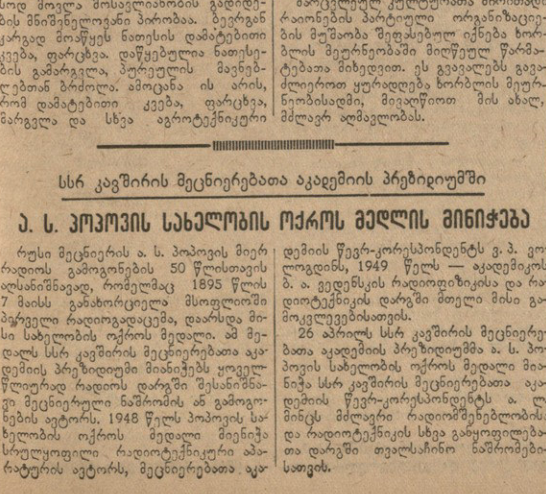 სოდ მოვლა მოსავლიანობის გადიდე-
ბის მნიშვნელოვანი პირობაა. ბევრგან
კარგად მოაწყეს ნათესის დამატებითი
კვება, ფარცხვა. დაწყებულია ნათესე-
ბის გამარგვლა, პურეულის მავნებ-
ლებთან ბრძოლა. ამოცანა ის არის,
რომ დამატებითი კვება, ფარცხვა,
მარგვლა და სხვა აგროტექნიკური
მარცვლეულ კულტურათა
რაიონების პარტიული ორგანიზაციე-
ბის მუშაობა შეფასებულ იქნება ხორ-
ბლის მეურნეობაში მიღწეულ წარმა-
ტებათა მიხედვით. ეს გვავალებს გავა-
ძლიეროთ ყურადღება ხორბლის მეურ-
ნეობისადმი, მივაღწიოთ მის ახალ,
მძლავრ აღმავლობას.
სსრ კავშირის მეცნიერებათა აკადემიის პრეზიდიუმში
ა. ს. პოპოვის სახელობის ოქროს მედლის მინიჭება
რუსი მეცნიერის ა. ს. პოპოვის მიერ
რადიოს გამოგონების 50 წლისთავის
აღსანიშნავად, რომელმაც 1895 წლის
7 მაისს განახორციელა მსოფლიოში
პირველი რადიოგადაცემა, დაარსდა მი-
სი სახელობის ოქროს მედალი. ამ მე-
დალს სსრ კავშირის მეცნიერებათა აკა-
დემიის პრეზიდიუმი მიანიჭებს ყოველ-
წლიურად რადიოს დარგში შესანიშნა-
ვი მეცნიერული ნაშრომის ან გამოგო-
ნების ავტორს. 1948 წელს პოპოვის სა-
ხელობის ოქროს მედალი მიენიჭა
სრულყოფილი რადიოტექნიკური აპა-
რატურის ავტორს, მეცნიერებათა აკა-
დემიის წევრ-კორესპონდენტს ვ. პ. ვო
ლოგდინს, 1949 წელს — აკადემიკოს
ბ. ა. ვედენსკის რადიოფიზიკისა და რა
დიოტექნიკის დარგში მთელი მისი გა
მოკვლევებისათვის.
26 აპრილს სსრ კავშირის მეცნიერე
ბათა აკადემიის პრეზიდიუმმა ა. ს. პო
პოვის სახელობის ოქროს მედალი მია
ნიჭა სსრ კავშირის მეცნიერებათა აკა
დემიის წევრ-კორესპონდენტს ა. ლ
მინცს მძლავრი რადიომშენებლობის
და რადიოტექნიკის სხვა განყოფილება
თა დარგში თვალსაჩინო ნაშრომები-
სათვის.